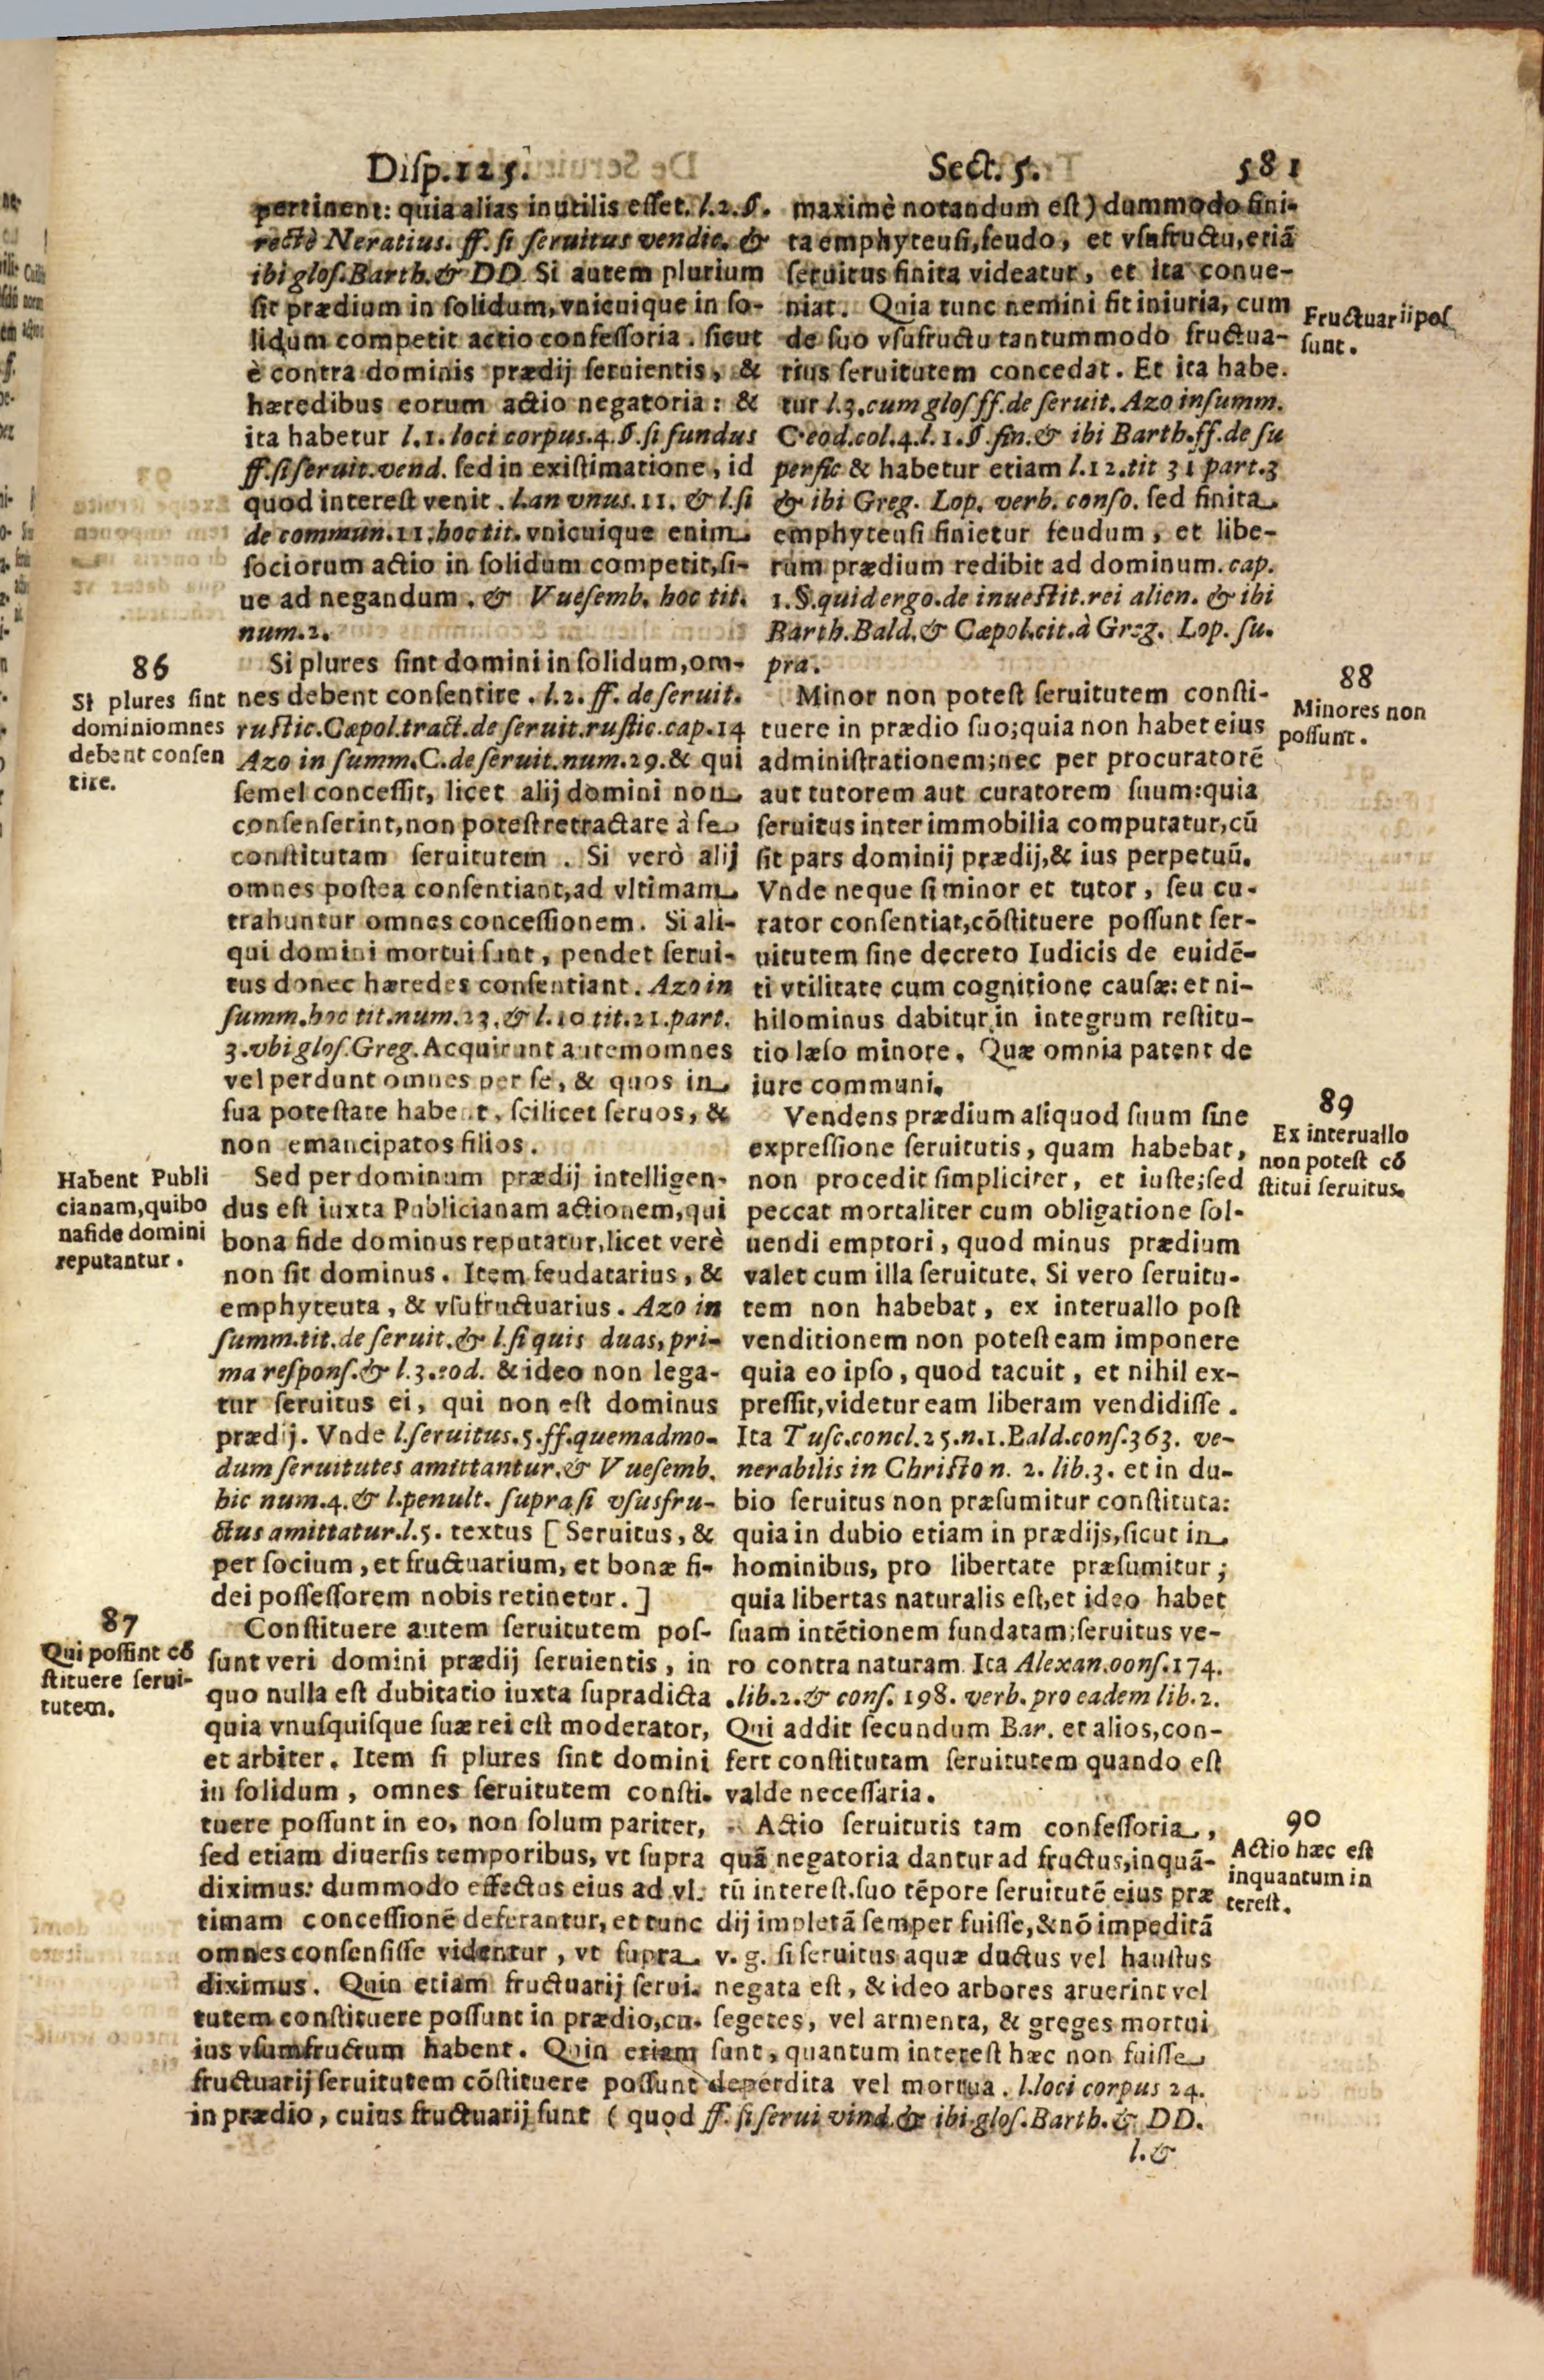 Disp.125.
Sect. 5.
581
pertinent: quia alias inutilis esset. l.2.§.
rectè Neratius. ff. si seruitus vendic. &
ibi glos. Barth. & DD. Si autem plurium
sit prædium in solidum, vnicuique in so-
lidum competit actio confessoria. sicut
è contra dominis prædij seruientis, &
hæredibus eorum actio negatoria: &
ita habetur l.1. loci corpus.4.§.si fundus
ff.si seruit.vend. sed in existimatione, id
quod interest venit. l.an vnus.11. & l.si
de commun.11.hoc tit. vnicuique enim
sociorum actio in solidum competit, si-
ue ad negandum. & Vuesemb. hoc tit.
num.2.
86
Si plures sint
dominiomnes
debent consen
tire.
Si plures sint domini in solidum, om-
nes debent consentire. l.2. ff. de seruit.
rustic.Cæpol.tract.de seruit.rustic.cap.14
Azo in summ.C.de seruit.num.29.& qui
semel concessit, licet alij domini non
consenserint, non potest retractare à se
constitutam seruitutem. Si verò alij
omnes postea consentiant, ad vltimam
trahuntur omnes concessionem. Si ali-
qui domini mortui sunt, pendet serui-
tus donec hæredes consentiant. Azo in
summ.hoc tit.num.23.& l.10 tit.21.part.
3.vbi glos.Greg. Acquirunt autem omnes
vel perdunt omnes per se, & quos in
sua potestate habent, scilicet seruos, &
non emancipatos filios.
Habent Publi
cianam, quibo
nafide domini
reputantur.
Sed per dominum prædij intelligen-
dus est iuxta Publicianam actionem, qui
bona fide dominus reputatur, licet verè
non sit dominus. Item feudatarius, &
emphyteuta, & vsufructuarius. Azo in
summ.tit.de seruit.& l.si quis duas, pri-
ma respons.& l.3.eod. & ideo non lega-
tur seruitus ei, qui non est dominus
prædij. Vnde l.seruitus.5.ff.quemadmo-
dum seruitutes amittantur.& Vuesemb.
hic num.4.& l.penult. supra si vsusfru-
ctus amittatur.l.5. textus [Seruitus, &
per socium, et fructuarium, et bonæ fi-
dei possessorem nobis retinetur.]
87
Qui possint cō
stituere serui-
tutem.
Constituere autem seruitutem pos-
sunt veri domini prædij seruientis, in
quo nulla est dubitatio iuxta supradicta
quia vnusquisque suæ rei est moderator,
et arbiter. Item si plures sint domini
in solidum, omnes seruitutem consti-
tuere possunt in eo, non solum pariter,
sed etiam diuersis temporibus, vt supra
diximus: dummodo effectus eius ad vl-
timam concessionē deferantur, et tunc
omnes consensisse videntur, vt supra
diximus. Quin etiam fructuarij serui-
tutem constituere possunt in prædio, cu-
ius vsumfructum habent. Quin etiam
fructuarij seruitutem cōstituere possunt
in prædio, cuius fructuarij sunt (quod
maximè notandum est) dummodo fini-
ta emphyteusi, feudo, et vsufructu, etiā
seruitus finita videatur, et ita conue-
niat. Quia tunc nemini fit iniuria, cum
de suo vsufructu tantummodo fructua-
rius seruitutem concedat. Et ita habe-
tur l.3.cum glos ff.de seruit. Azo in summ.
C.eod.col.4.l.1.§.fin.& ibi Barth.ff.de su
perfic & habetur etiam l.12.tit 31 part.3
& ibi Greg. Lop. verb. conso. sed finita
emphyteusi finietur feudum, et libe-
rum prædium redibit ad dominum. cap.
1.§.quid ergo.de inuestit.rei alien. & ibi
Barth.Bald.& Cæpol.cit.à Greg. Lop. su-
pra.
Fructuarii pos
sunt.
88
Minores non
possunt.
Minor non potest seruitutem consti-
tuere in prædio suo; quia non habet eius
administrationem; nec per procuratorē
aut tutorem aut curatorem suum: quia
seruitus inter immobilia computatur, cū
sit pars dominij prædij, & ius perpetuū.
Vnde neque si minor et tutor, seu cu-
rator consentiat, cōstituere possunt ser-
uitutem sine decreto Iudicis de euidē-
ti vtilitate cum cognitione causæ: et ni-
hilominus dabitur in integrum restitu-
tio læso minore. Quæ omnia patent de
iure communi.
89
Ex interuallo
non potest cō
stitui seruitus.
Vendens prædium aliquod suum sine
expressione seruitutis, quam habebat,
non procedit simpliciter, et iuste; sed
peccat mortaliter cum obligatione sol-
uendi emptori, quod minus prædium
valet cum illa seruitute. Si vero seruitu-
tem non habebat, ex interuallo post
venditionem non potest eam imponere
quia eo ipso, quod tacuit, et nihil ex-
pressit, videtur eam liberam vendidisse.
Ita Tusc.concl.25.n.1.Bald.cons.363. ve-
nerabilis in Christo n. 2. lib.3. et in du-
bio seruitus non præsumitur constituta:
quia in dubio etiam in prædijs, sicut in
hominibus, pro libertate præsumitur;
quia libertas naturalis est, et ideo habet
suam intētionem fundatam; seruitus ve-
ro contra naturam. Ita Alexan.oons.174.
.lib.2.& cons. 198. verb. pro eadem lib.2.
Qui addit secundum Bar. et alios, con-
fert constitutam seruitutem quando est
valde necessaria.
90
Actio hæc est
inquantum in
terest.
Actio seruitutis tam confessoria,
quā negatoria dantur ad fructus, inquā-
tū interest. suo tēpore seruitutē eius præ
dij impletā semper fuisse, & nō impeditā
v. g. si seruitus aquæ ductus vel haustus
negata est, & ideo arbores aruerint vel
segetes, vel armenta, & greges mortui
sunt, quantum interest hæc non fuisse
deperdita vel mortua. l.loci corpus 24.
ff. si serui vind. & ibi glos. Barth. & DD.
l.&